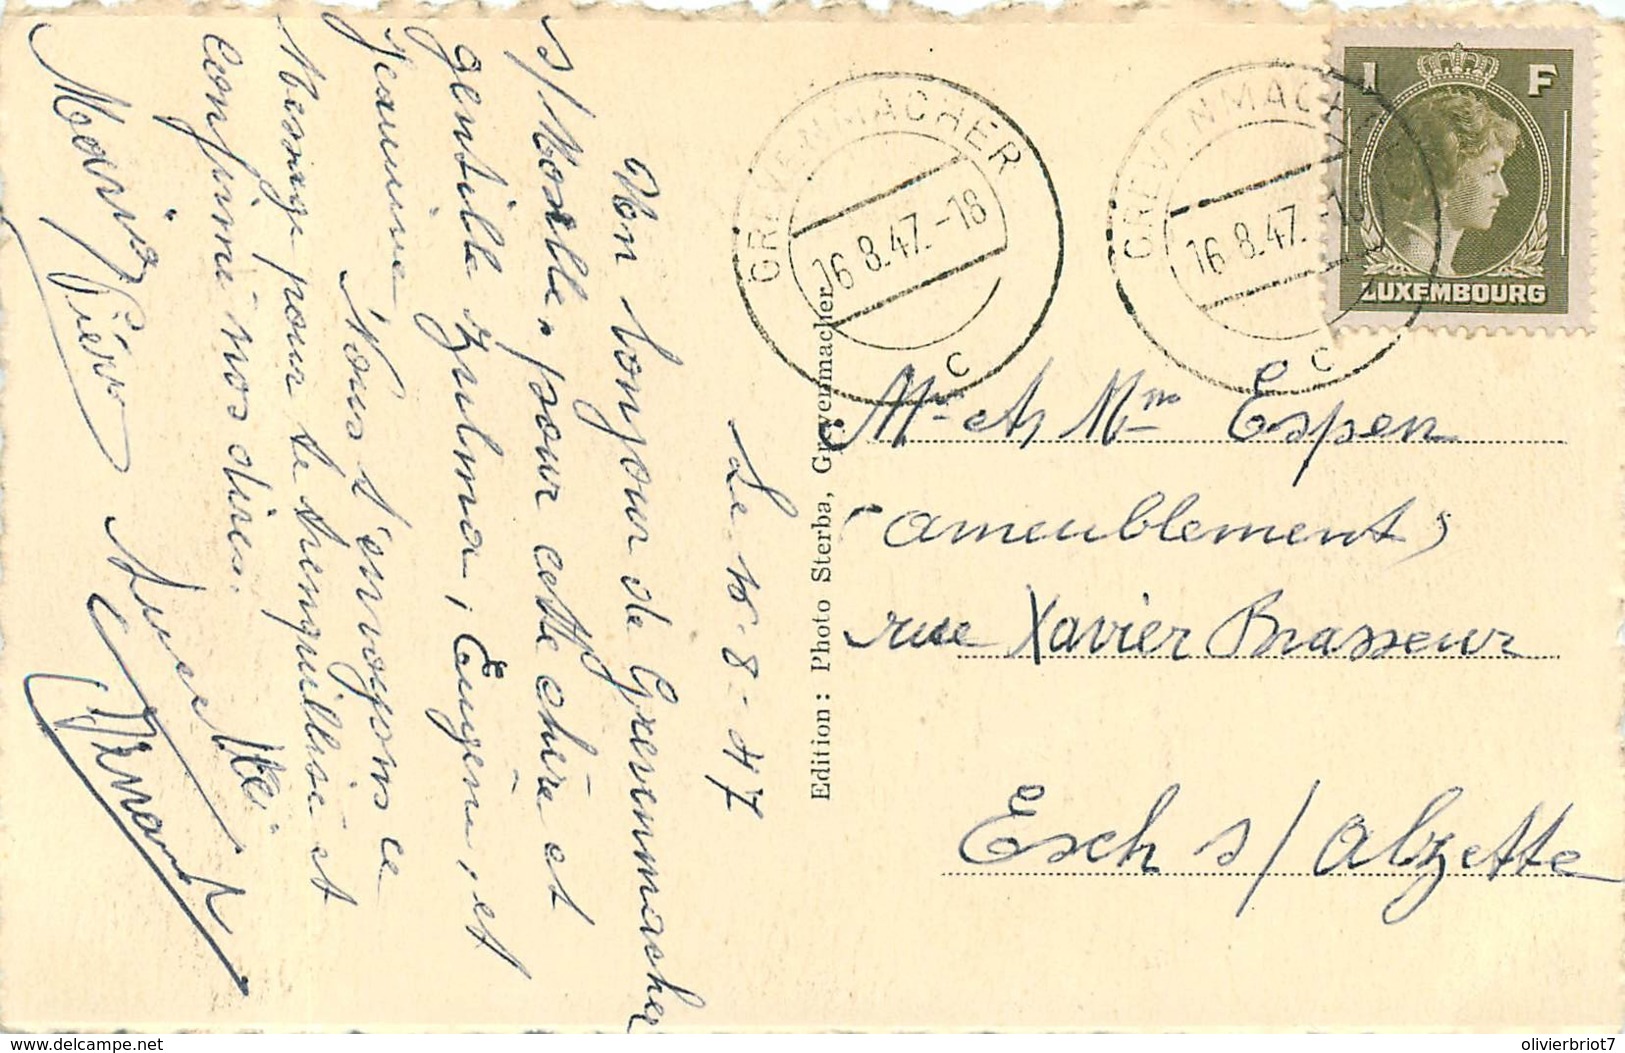 Le 16-8-47
Mon bonjour de Grevenmacher
s/Moselle, pour cette chère et
gentille Zulma, Eugène, et
Jeannine
Nous t'envoyons ce
Message pour te tranquillisé et
Confirmé nos dires.
Maria
Edition : Photo Sterba, Grevenmacher
GREVENMACHER
16.8.47.-18
C
GREVENMACHER
16.8.47.-18
C
1 F
LUXEMBOURG
Mr et Mme Espen
(ameublements
rue Xavier Brasseur
Esch s/Alzette
delcampe.net
olivierbriot7